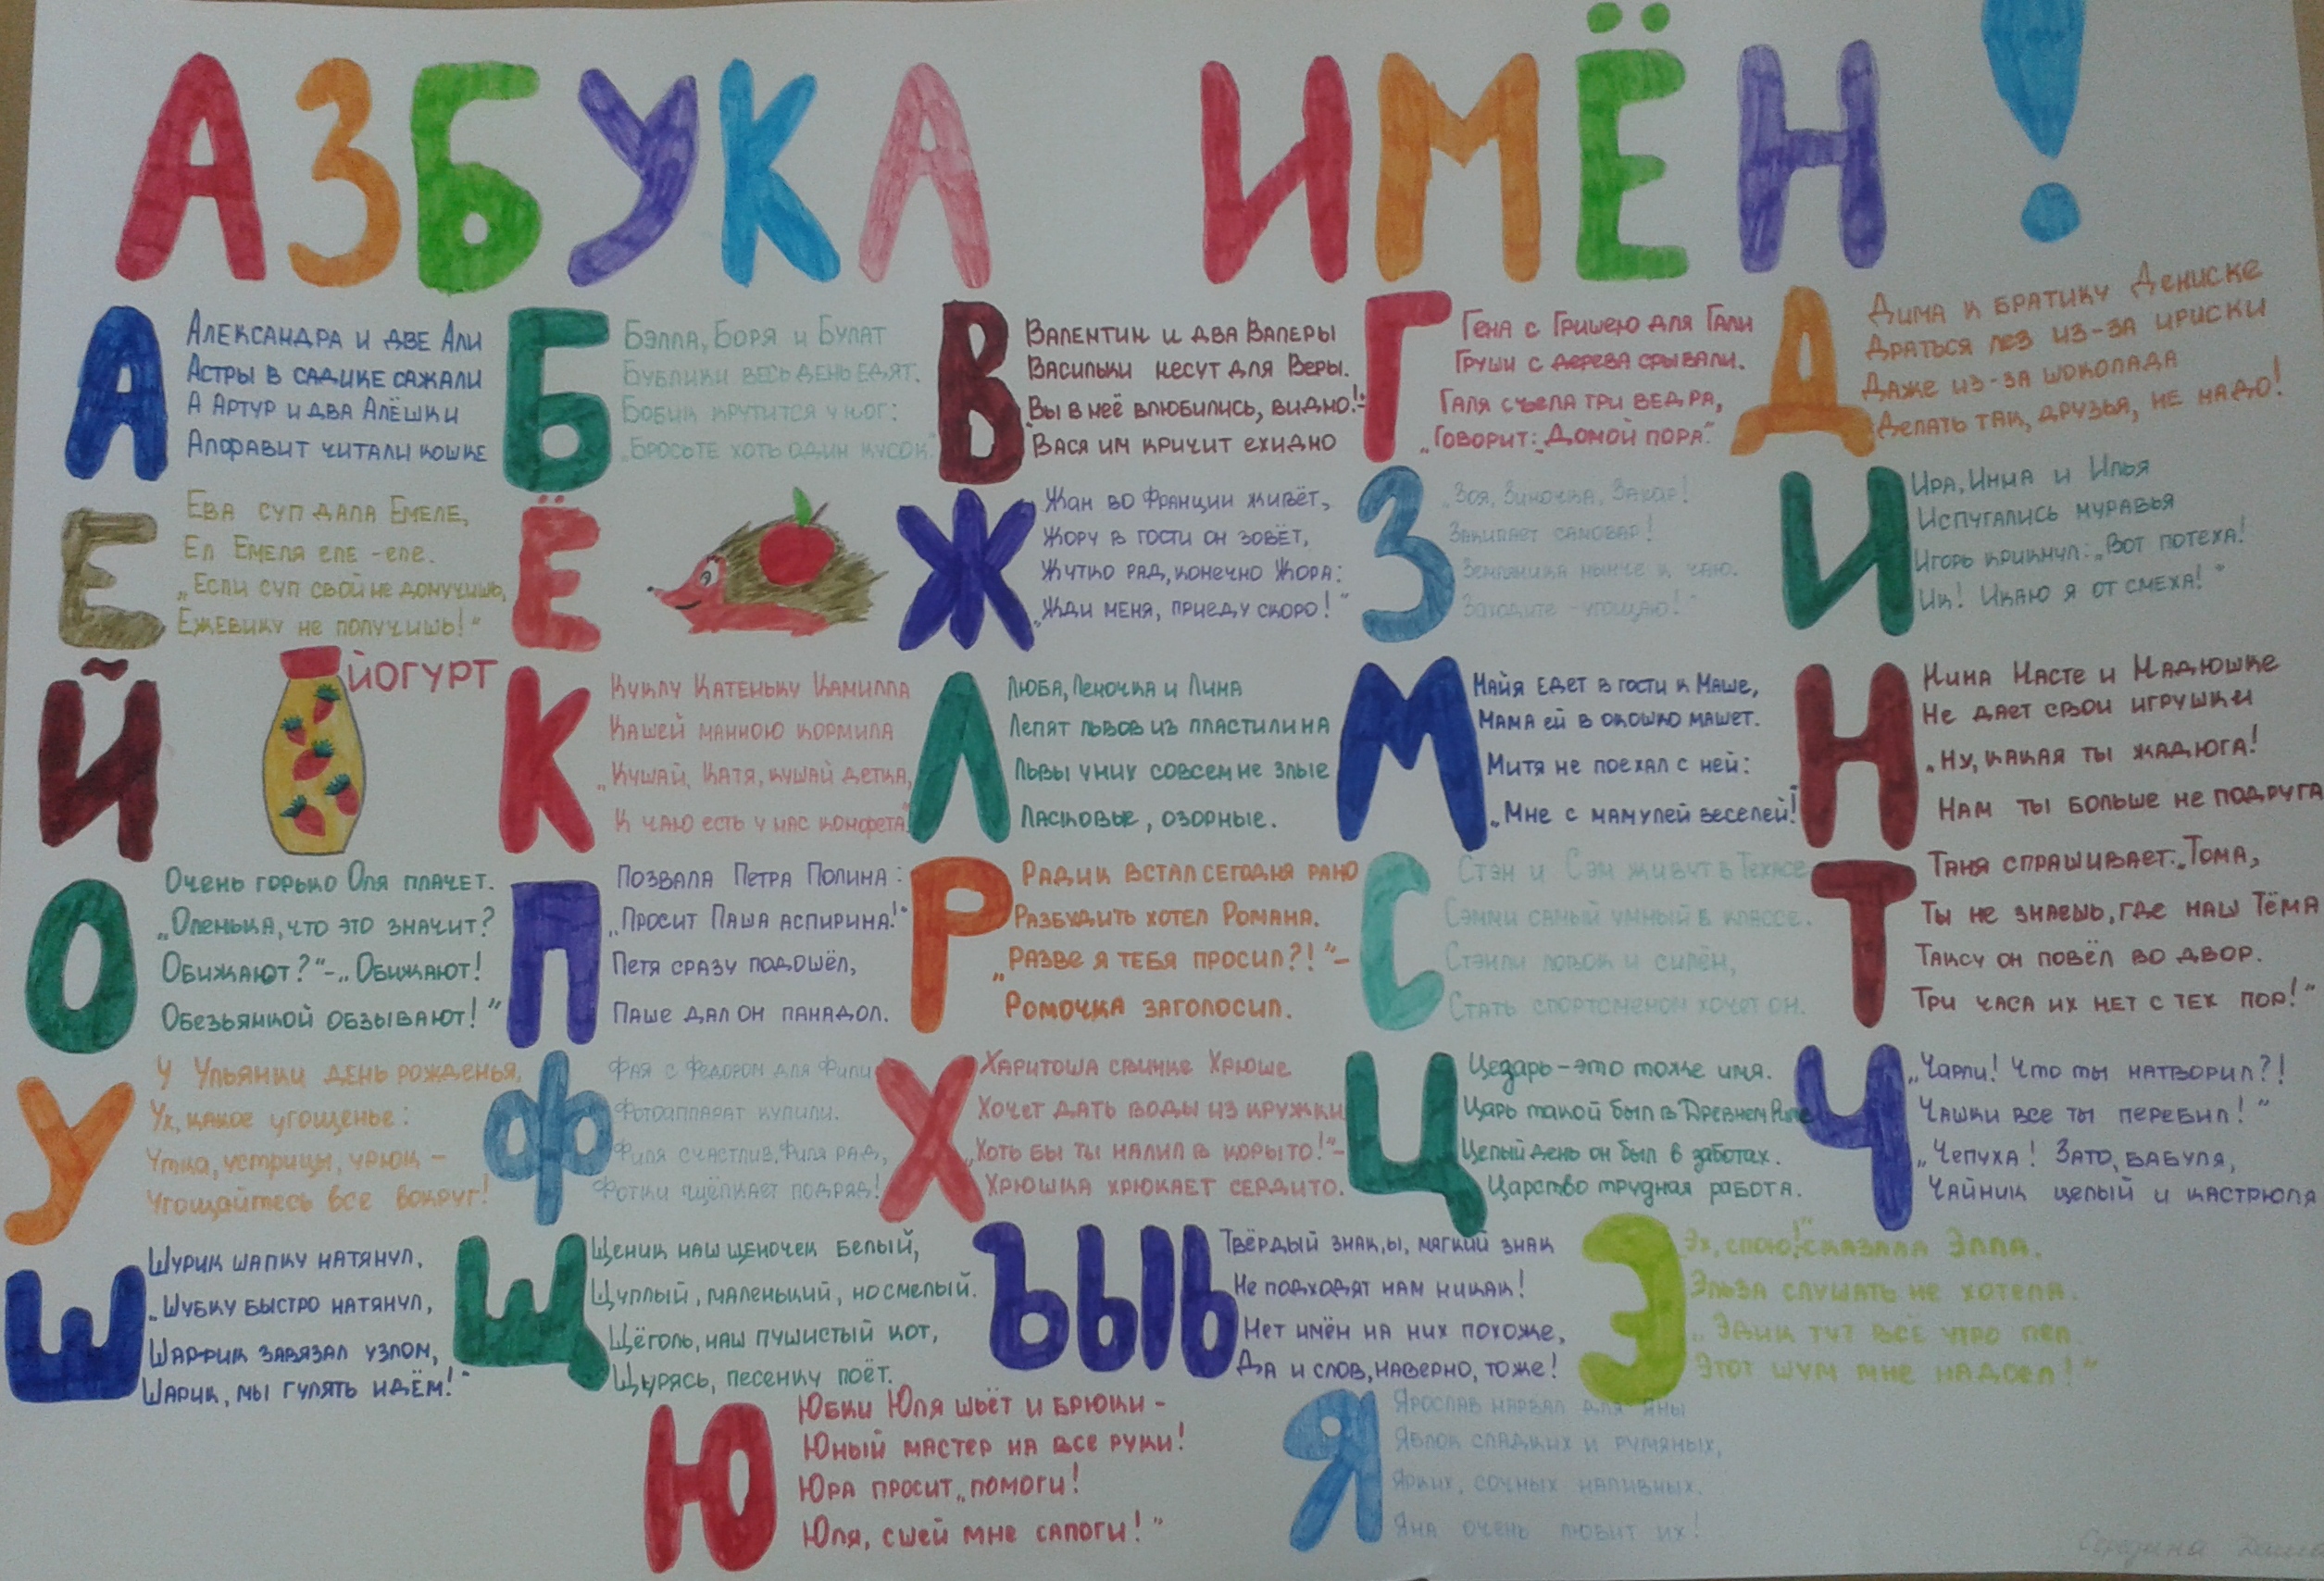 АЗБУКА ИМЁН!
А
Александра и две Али
Астры в садике сажали
А Артур и два Алёшки
Алфавит читали кошке
Б
Бэлла, Боря и Булат
Бублики весь день едят.
Бобик крутится у ног:
„Бросьте хоть один кусок"
В
Валентин и два Валеры
Васильки несут для Веры.
„Вы в неё влюбились, видно!"-
Вася им кричит ехидно
Г
Гена с Гришею для Гали
Груши с дерева срывали.
Галя съела три ведра,
„Говорит: „Домой пора".
Д
Дима к братику Дениске
Драться лез из-за ириски
Даже из-за шоколада
Делать так, друзья, не надо!
Е
Ева суп дала Емеле,
Ел Емеля еле-еле.
„Если суп свой не домучишь,
Ежевику не получишь!"
Ё
Ж
Жан во Франции живёт,
Жору в гости он зовёт,
Жутко рад, конечно Жора:
„Жди меня, приеду скоро!"
З
„Зоя, Зиночка, Захар!
Закипает самовар!
Земляника нынче к чаю.
Заходите - угощаю!"
И
Ира, Инна и Илья
Испугались муравья
Игорь крикнул: „Вот потеха!
Ик! Икаю я от смеха!"
Й
ЙОГУРТ
К
Куклу Катеньку Камилла
Кашей манною кормила
„Кушай, Катя, кушай детка,
К чаю есть у нас конфета"
Л
Люба, Леночка и Лина
Лепят львов из пластилина
Львы у них совсем не злые
Ласковые, озорные.
М
Майя едет в гости к Маше,
Мама ей в окошко машет.
Митя не поехал с ней:
„Мне с мамулей веселей!"
Н
Нина Насте и Надюшке
Не дает свои игрушки
„Ну, какая ты жадюга!
Нам ты больше не подруга
О
Очень горько Оля плачет.
„Оленька, что это значит?
Обижают?"-„Обижают!
Обезьянкой обзывают!"
П
Позвала Петра Полина:
„Просит Паша аспирина!"
Петя сразу подошёл,
Паше дал он панадол.
Р
Радик встал сегодня рано
Разбудить хотел Романа.
„Разве я тебя просил?!"-
Ромочка заголосил.
С
Стэн и Сэм живут в Техасе
Сэмми самый умный в классе.
Стэнли ловок и силён,
Стать спортсменом хочет он.
Т
Таня спрашивает: „Тома,
Ты не знаешь, где наш Тёма
Таксу он повёл во двор.
Три часа их нет с тех пор!"
У
У Ульянки день рожденья,
Ух, какое угощенье:
Утка, устрицы, урюк -
Угощайтесь все вокруг!
Ф
Фая с Фёдором для Фили
Фотоаппарат купили.
Филя счастлив, Филя рад,
Фотки щёлкает подряд!
Х
Харитоша свинке Хрюше
Хочет дать воды из кружки
„Хоть бы ты налил в корыто!"-
Хрюшка хрюкает сердито.
Ц
Цезарь - это тоже имя.
Царь такой был в Древнем Риме
Целый день он был в заботах.
Царство трудная работа.
Ч
„Чарли! Что ты натворил?!
Чашки все ты перебил!"
„Чепуха! Зато, бабуля,
Чайник целый и кастрюля
Ш
Шурик шапку натянул,
„Шубку быстро натянул,
Шарфик завязал узлом,
Шарик, мы гулять идём!"
Щ
Щеник наш щеночек белый,
Щуплый, маленький, но смелый.
Щёголь, наш пушистый кот,
Щурясь, песенку поёт.
ЪЫЬ
Твёрдый знак, ы, мягкий знак
Не подходят нам никак!
Нет имён на них похоже,
Да и слов, наверно, тоже!
Э
Эх, спою!" сказала Элла.
Эльза слушать не хотела.
„Эдик тут всё утро пел
Этот шум мне надоел!"
Ю
Юбки Юля шьёт и брюки -
Юный мастер на все руки!
Юра просит „помоги!
Юля, сшей мне сапоги!"
Я
Ярослав нарвал для Яны
Яблок сладких и румяных,
Ярких, сочных наливных.
Яна очень любит их!